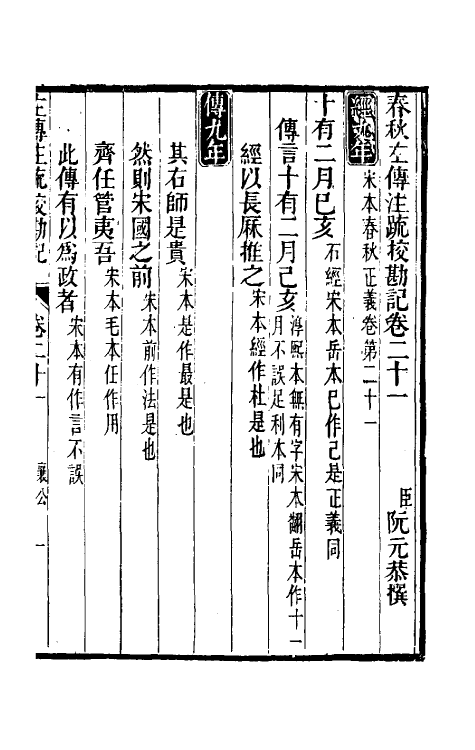 春秋左傳注疏挍勘記卷二十一　臣阮元恭撰
經九年　宋本春秋正義卷第二十一
十有二月巳亥　石經宋本岳本巳作己是正義同
傳言十有二月己亥　淳熙本無有字宋本翻岳本作十一月不誤足利本同
經以長厤推之　宋本經作杜是也
傳九年
其右師是貴　宋本是作最是也
然則宋國之前　宋本前作法是也
齊任管夷吾　宋本毛本任作用
此傳有以爲政者　宋本有作言不誤
左傳注疏挍勘記　卷二十一　襄公　一